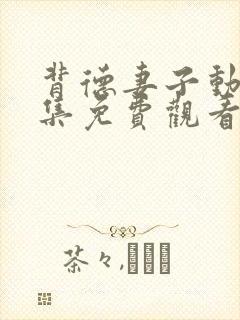 背德妻子動
集免費觀看
茶々,